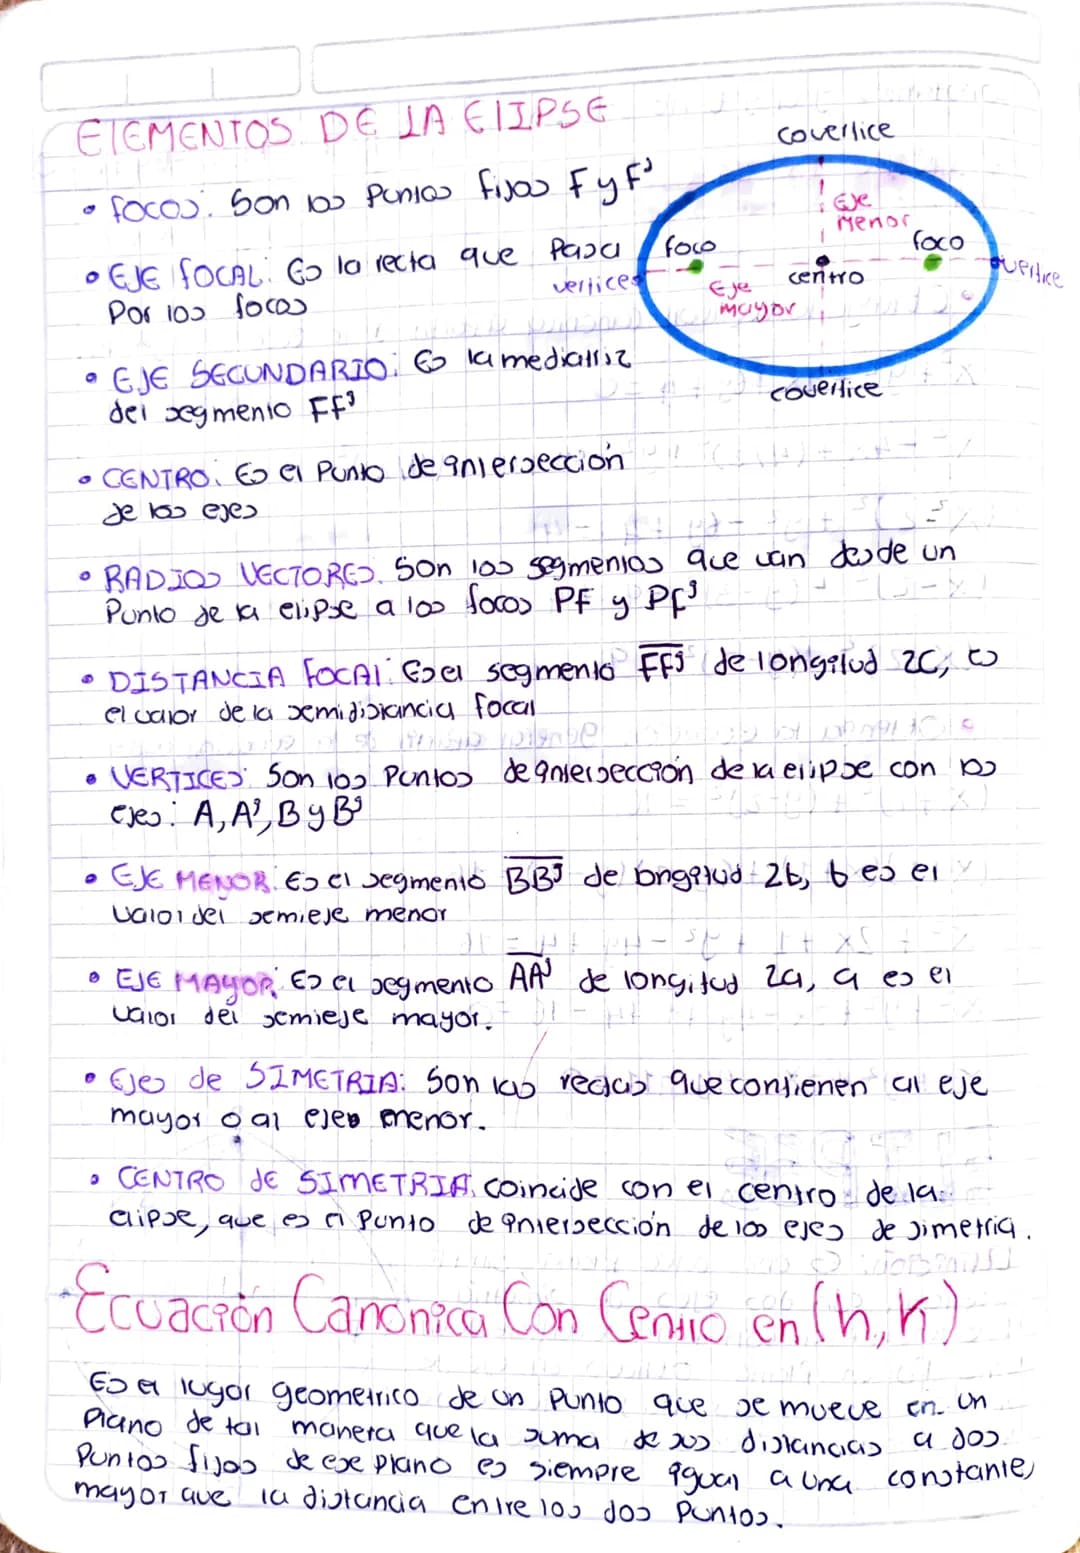 ElEMENTOS DE LA ElIPSE
covertice
• focos: Son los Puntos fijos F y F'
Eje
Menor
foco
foco
• EJE fOCAL: Es la recta que Pasa
Por los focos
vertices
centro
vertice
Eje
mayor
• EJE SECUNDARIO: Es la mediatriz
del segmento FF'
covertice
• CENTRO: Es el Punto de intersección
de los ejes
• RADIOS VECTORES. Son los segmentos que van desde un
Punto de la elipse a los focos PF y PF'
• DISTANCIA fOCAl: Es el segmento FF' de longitud 2C, es
el valor de la semidistancia focal
• VERTICES: Son los Puntos de intersección de la elipse con los
ejes: A, A', B y B'
• EJE MENOR: Es el segmento BB' de longitud 2b, b es el
valor del semieje menor
• EJE MAYOR: Es el segmento AA' de longitud 2a, a es el
valor del semieje mayor.
• Ejes de SIMETRIA: Son las rectas que contienen al eje
mayor o al eje menor.
• CENTRO DE SIMETRIA. Coincide con el centro de la
elipse, que es el Punto de intersección de los ejes de simetria.
Ecuación Canonica Con Centro en (h, K)
Es el lugar geometrico de un Punto que se mueve en un
Plano de tal manera que la suma de sus distancias a dos
Puntos fijos de ese plano es siempre igual a una constante,
mayor que la distancia entre los dos Puntos.